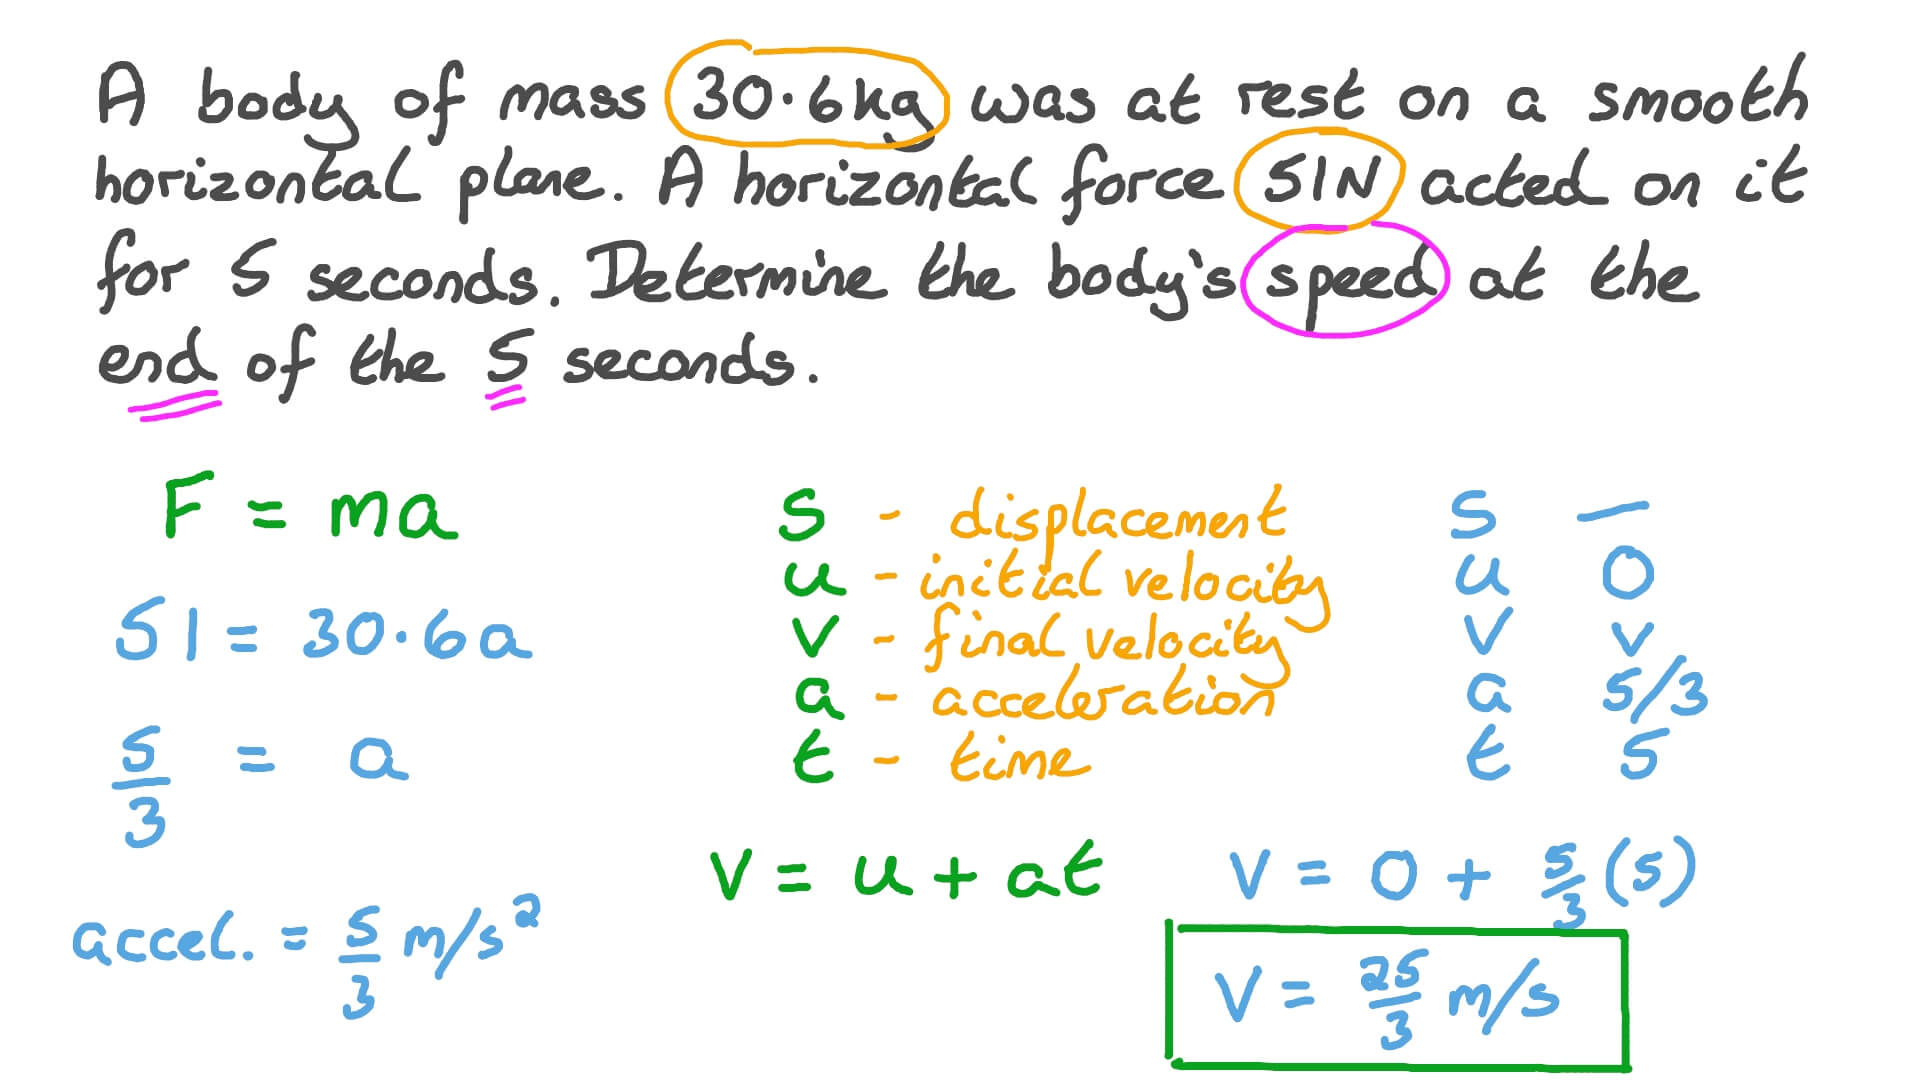 A body of mass 30.6kg was at rest on a smooth
horizontal plane. A horizontal force 51N acted on it
for 5 seconds. Determine the body's speed at the
end of the 5 seconds.
F = ma
51 = 30.6a
5/3 = a
accel. = 5/3 m/s²
s - displacement
u - initial velocity
v - final velocity
a - acceleration
t - time
s —
u 0
v v
a 5/3
t 5
v = u + at
v = 0 + 5/3 (5)
v = 25/3 m/s